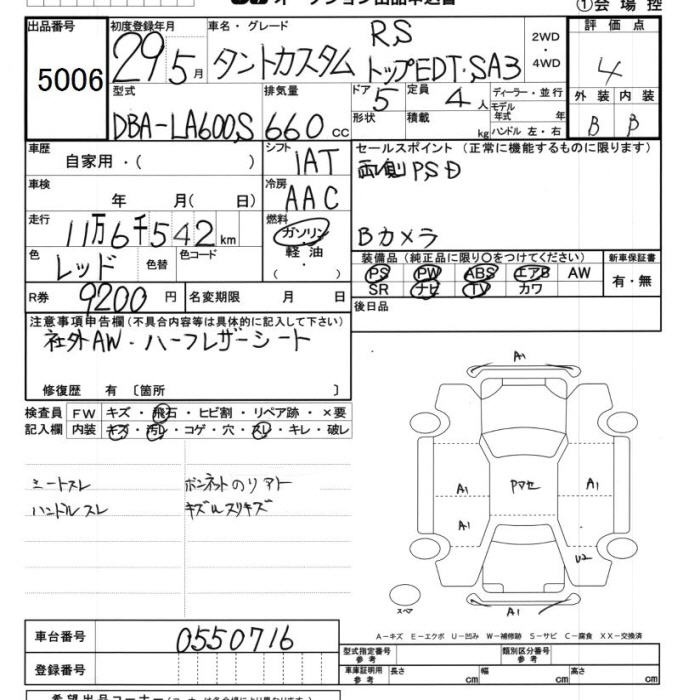 オークション出品申込書
①会場控
出品番号 5006
初度登録年月 29 5月
車名・グレード タントカスタム RS トップEDT・SA3
2WD・4WD
評価点 4
外装 内装
B B
型式 DBA-LA600S
排気量 660 cc
ドア 5
定員 4人
形状
積載 kg
ディーラー・並行
モデル年式 年
ハンドル 左・右
車歴 自家用・( )
シフト IAT
車検 年 月( 日)
冷房 AAC
セールスポイント (正常に機能するものに限ります)
両側PSD
Bカメラ
走行 11万6千542km
燃料 ガソリン・軽油・( )
色 レッド
色替
色コード
R券 9200円
名変期限 月 日
装備品 (純正品に限り○をつけてください)
新車保証書
PS PW ABS エアB AW
SR ナビ TV カワ
有・無
後日品
注意事項申告欄(不具合内容等は具体的に記入して下さい)
社外AW・ハーフレザーシート
修復歴 有〔箇所 〕
検査員記入欄
FW キズ・飛石・ヒビ割・リペア跡・×要
内装 キズ・汚レ・コゲ・穴・スレ・キレ・破レ
シートスレ
ハンドルスレ
キズルスリキズ
A1
A1 Pマセ A1
A1
U2
A1
スペア
A−キズ E−エクボ U−凹み W−補修跡 S−サビ C−腐食 XX−交換済
車台番号 0550716
登録番号
型式指定番号 参考
類別区分番号 参考
車庫証明用 参考 長さ cm 幅 cm 高さ cm
希望出品コーナー